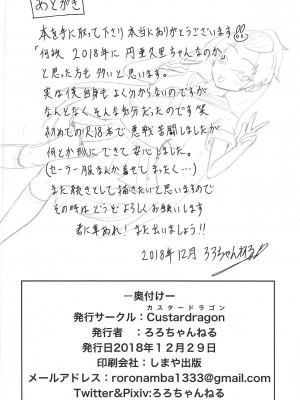 あとがき
本を手に取って下さり本当にありがとうございます!!
「何故2018年に円亜久里ちゃんなのか」
と思った方も多いと思います。
実は僕自身もよく分からないのですが
なんとなくそんな気分だったのです笑
初めてのR18本で悪戦苦闘しましたが
何とか形にできて安心しました。
(セーラー服なんか着せてまったく…)
また続きとして描きたいと思いますので
その時はどうぞよろしくお願いします
また出しましょう!!
2018年12月 ろろちゃんねる
ー奥付けー
カスタードラゴン
発行サークル:Custardragon
発行者 :ろろちゃんねる
発行日2018年12月29日
印刷会社:しまや出版
メールアドレス:roronamba1333@gmail.com
Twitter&Pixiv:ろろちゃんねる